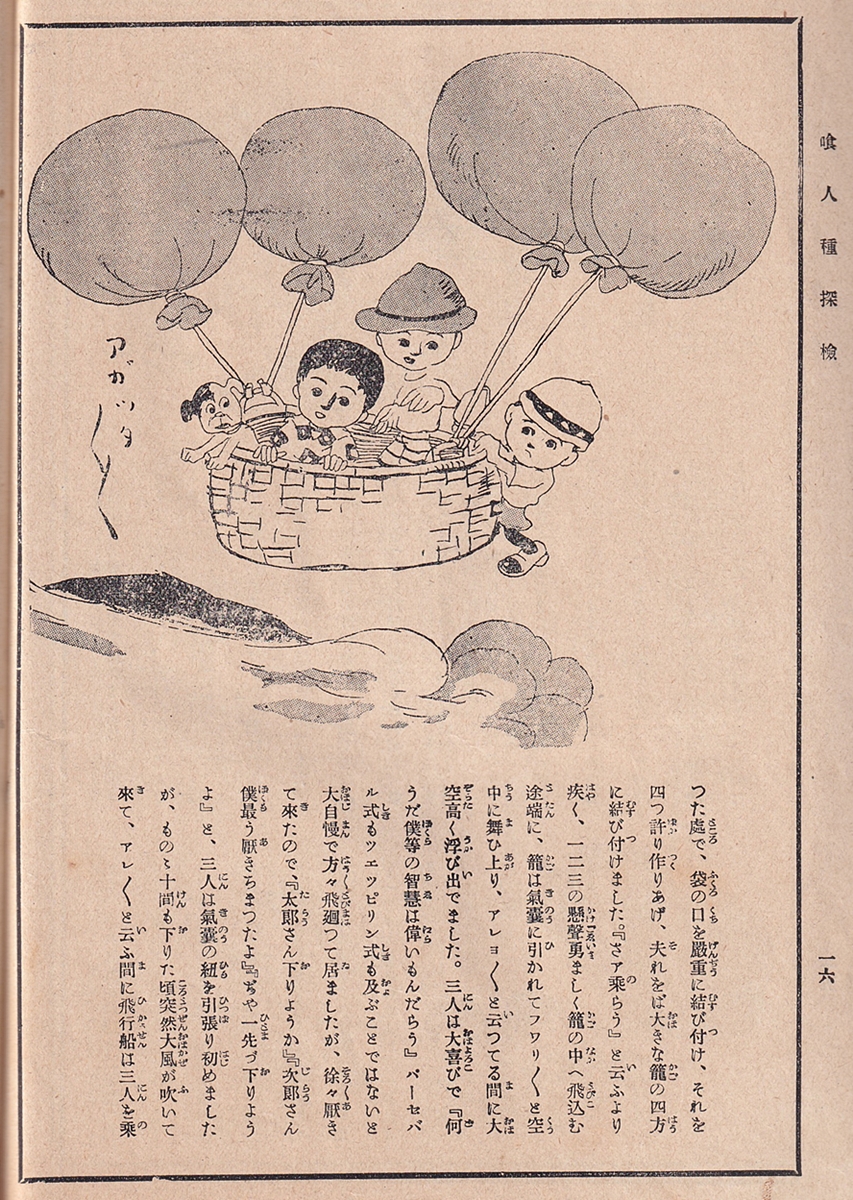 喰人種探檢
一六
アガッタ〳〵〳〵
つた處で、袋の口を嚴重に結び付け、それを
四つ許り作りあげ、夫れをば大きな籠の四方
に結び付けました。『さァ乘らう』と云ふより
疾く、一二三の懸聲勇ましく籠の中へ飛込む
途端に、籠は氣囊に引かれてフワリ〳〵と空
中に舞ひ上り、アレヨ〳〵と云つてる間に大
空高く浮び出でました。三人は大喜びで『何
うだ僕等の智慧は偉いもんだらう』パーセバ
ル式もツエツピリン式も及ぶことではないと
大自慢で方々飛廻つて居ましたが、徐々厭き
て來たので、『太郎さん下りようか』『次郎さん
僕最う厭きちまつたよ』『ぢや一先づ下りよう
よ』と、三人は氣囊の紐を引張り初めました
が、ものゝ十間も下りた頃突然大風が吹いて
來て、アレ〳〵と云ふ間に飛行船は三人を乘